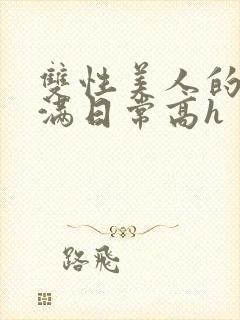 雙性美人的
滿日常高h
路飛